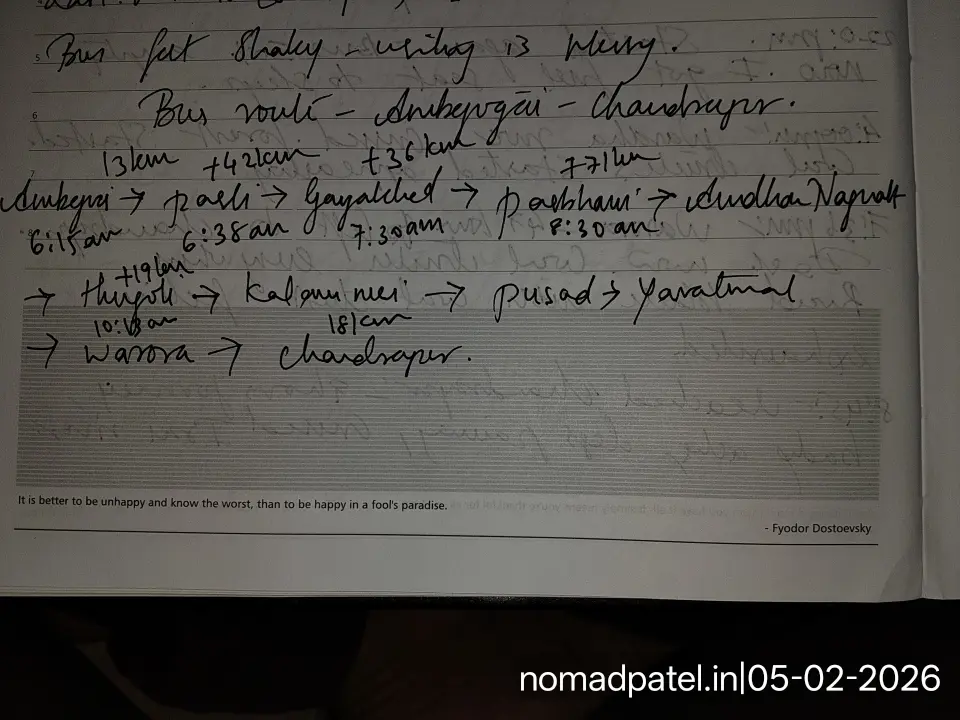 Bus felt shaky - writing is messy.
Bus route - Ambejogai - Chandrapur.
13km +42km +36km 771km
Ambejogai → parli → Gangakhed → parbhani → Aundha Nagnath
6:15am 6:38am 7:30am 8:30am
+19km
→ hingoli → Kalamnuri → pusad → Yavatmal
10:13am 181km
→ warora → Chandrapur.
It is better to be unhappy and know the worst, than to be happy in a fool's paradise.
- Fyodor Dostoevsky
nomadpatel.in|05-02-2026